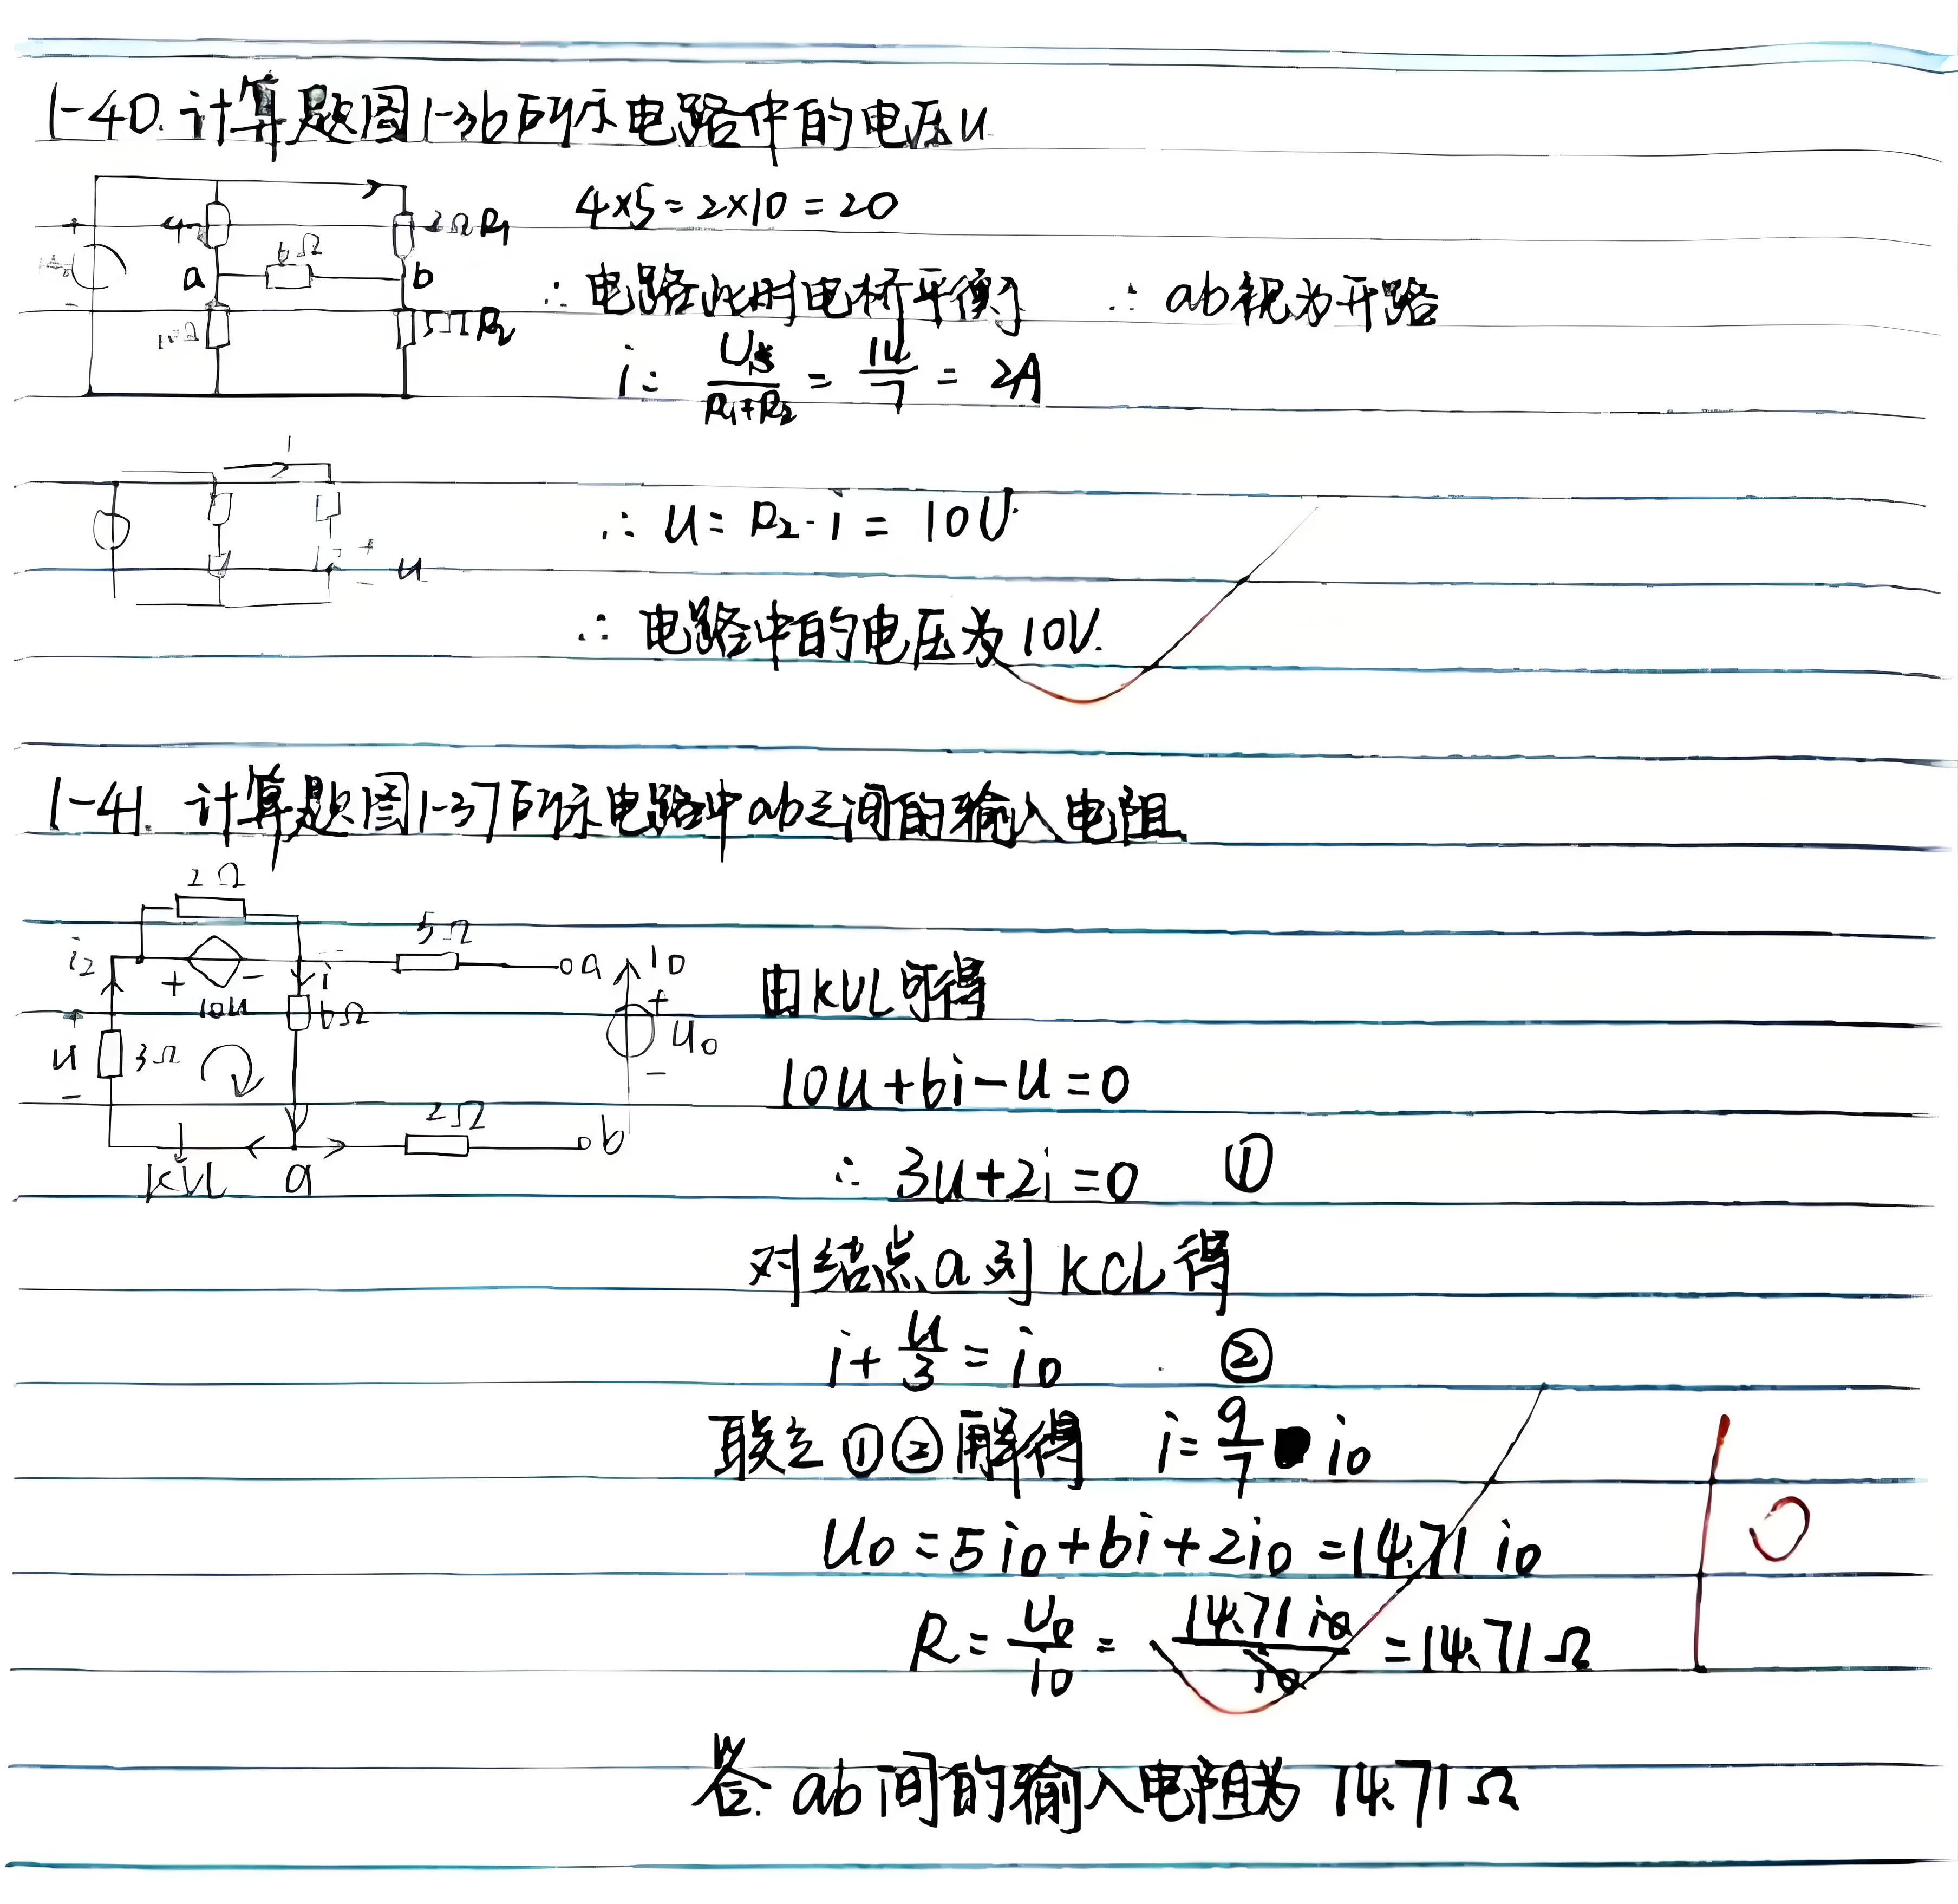 1-40. 计算题图1-36所示电路中的电压u
4×5=2×10=20
4
2Ω R₁
6Ω
a
b
∴ 电路此时电桥平衡 ∴ ab视为开路
10Ω
R₂
i = Us/(R₁+R₂) = 14/7 = 2A
i
∴ u = R₂·i = 10V
+
u
-
∴ 电路中的电压为10V.
1-41. 计算题图1-37所示电路中ab之间的输入电阻
2Ω
5Ω
i₂
+ -
10u
i
a
i₀
+
u₀
-
由KVL可得
+
u
-
3Ω
6Ω
10u+6i-u=0
2Ω
b
KVL
a
∴ 3u+2i=0 ①
对结点a列KCL得
i+u/3=i₀ ②
联立①②解得 i=9/7 i₀
u₀=5i₀+6i+2i₀=14.71 i₀
R=U₀/i₀=14.71 i₀/i₀=14.71Ω
答. ab间的输入电阻为 14.71Ω